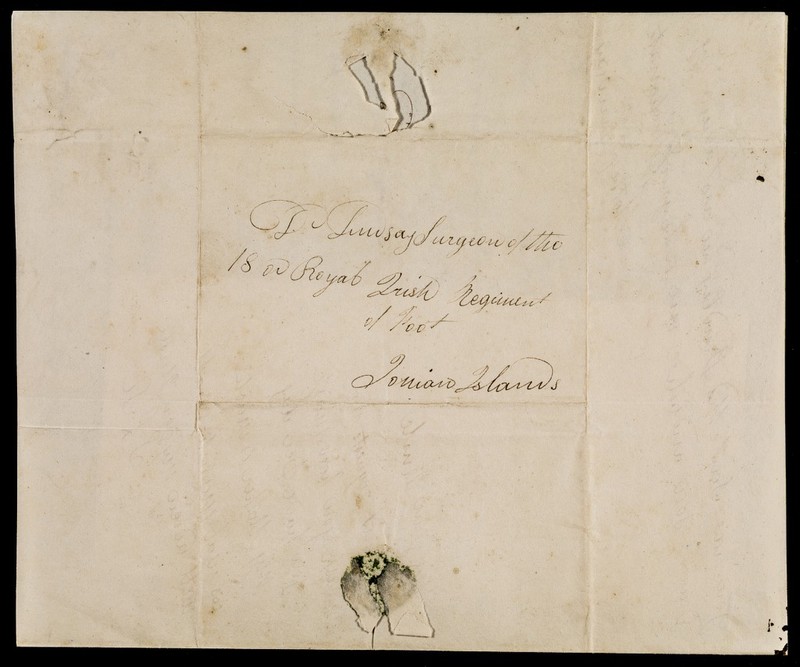 Dr Lindsay Surgeon of the
18 or Royal Irish Regiment
of Foot
Ionian Islands